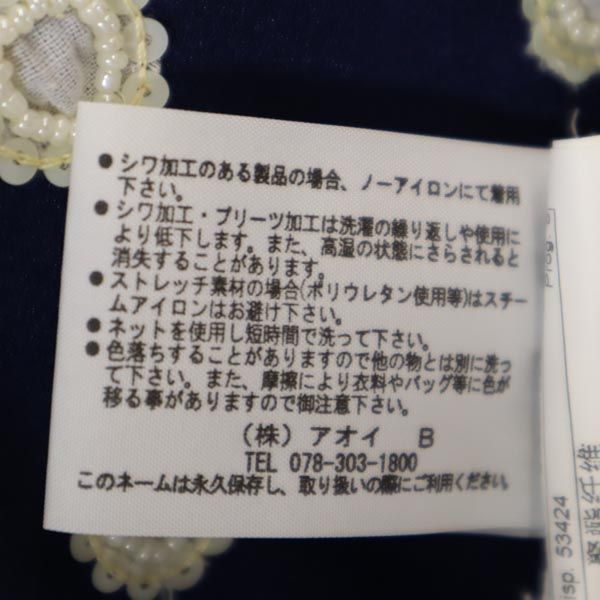 ● シワ加工のある製品の場合、ノーアイロンにて着用
下さい。
● シワ加工・プリーツ加工は洗濯の繰り返しや使用に
より低下します。また、高湿の状態にさらされると
消失することがあります。
● ストレッチ素材の場合(ポリウレタン使用等)はスチー
ムアイロンはお避け下さい。
● ネットを使用し短時間で洗って下さい。
● 色落ちすることがありますので他の物とは別に洗っ
て下さい。また、摩擦により衣料やバッグ等に色が
移る事がありますので御注意下さい。
(株) アオイ B
TEL 078-303-1800
このネームは永久保存し、取り扱いの際にご利用ください。
isp. 53424
聚酯纤维